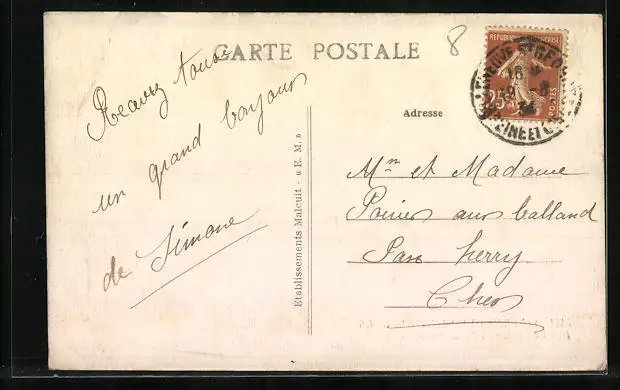 CARTE POSTALE
8
REPUBLIQUE FRANÇAISE
25
POSTES
18
34
SEINE ET O
Recevez tous
un grand bonjour
de Simone
Etablissements Malcuit - « E. M. »
Adresse
Mr et Madame
aux Calland
Par Herry
Cher